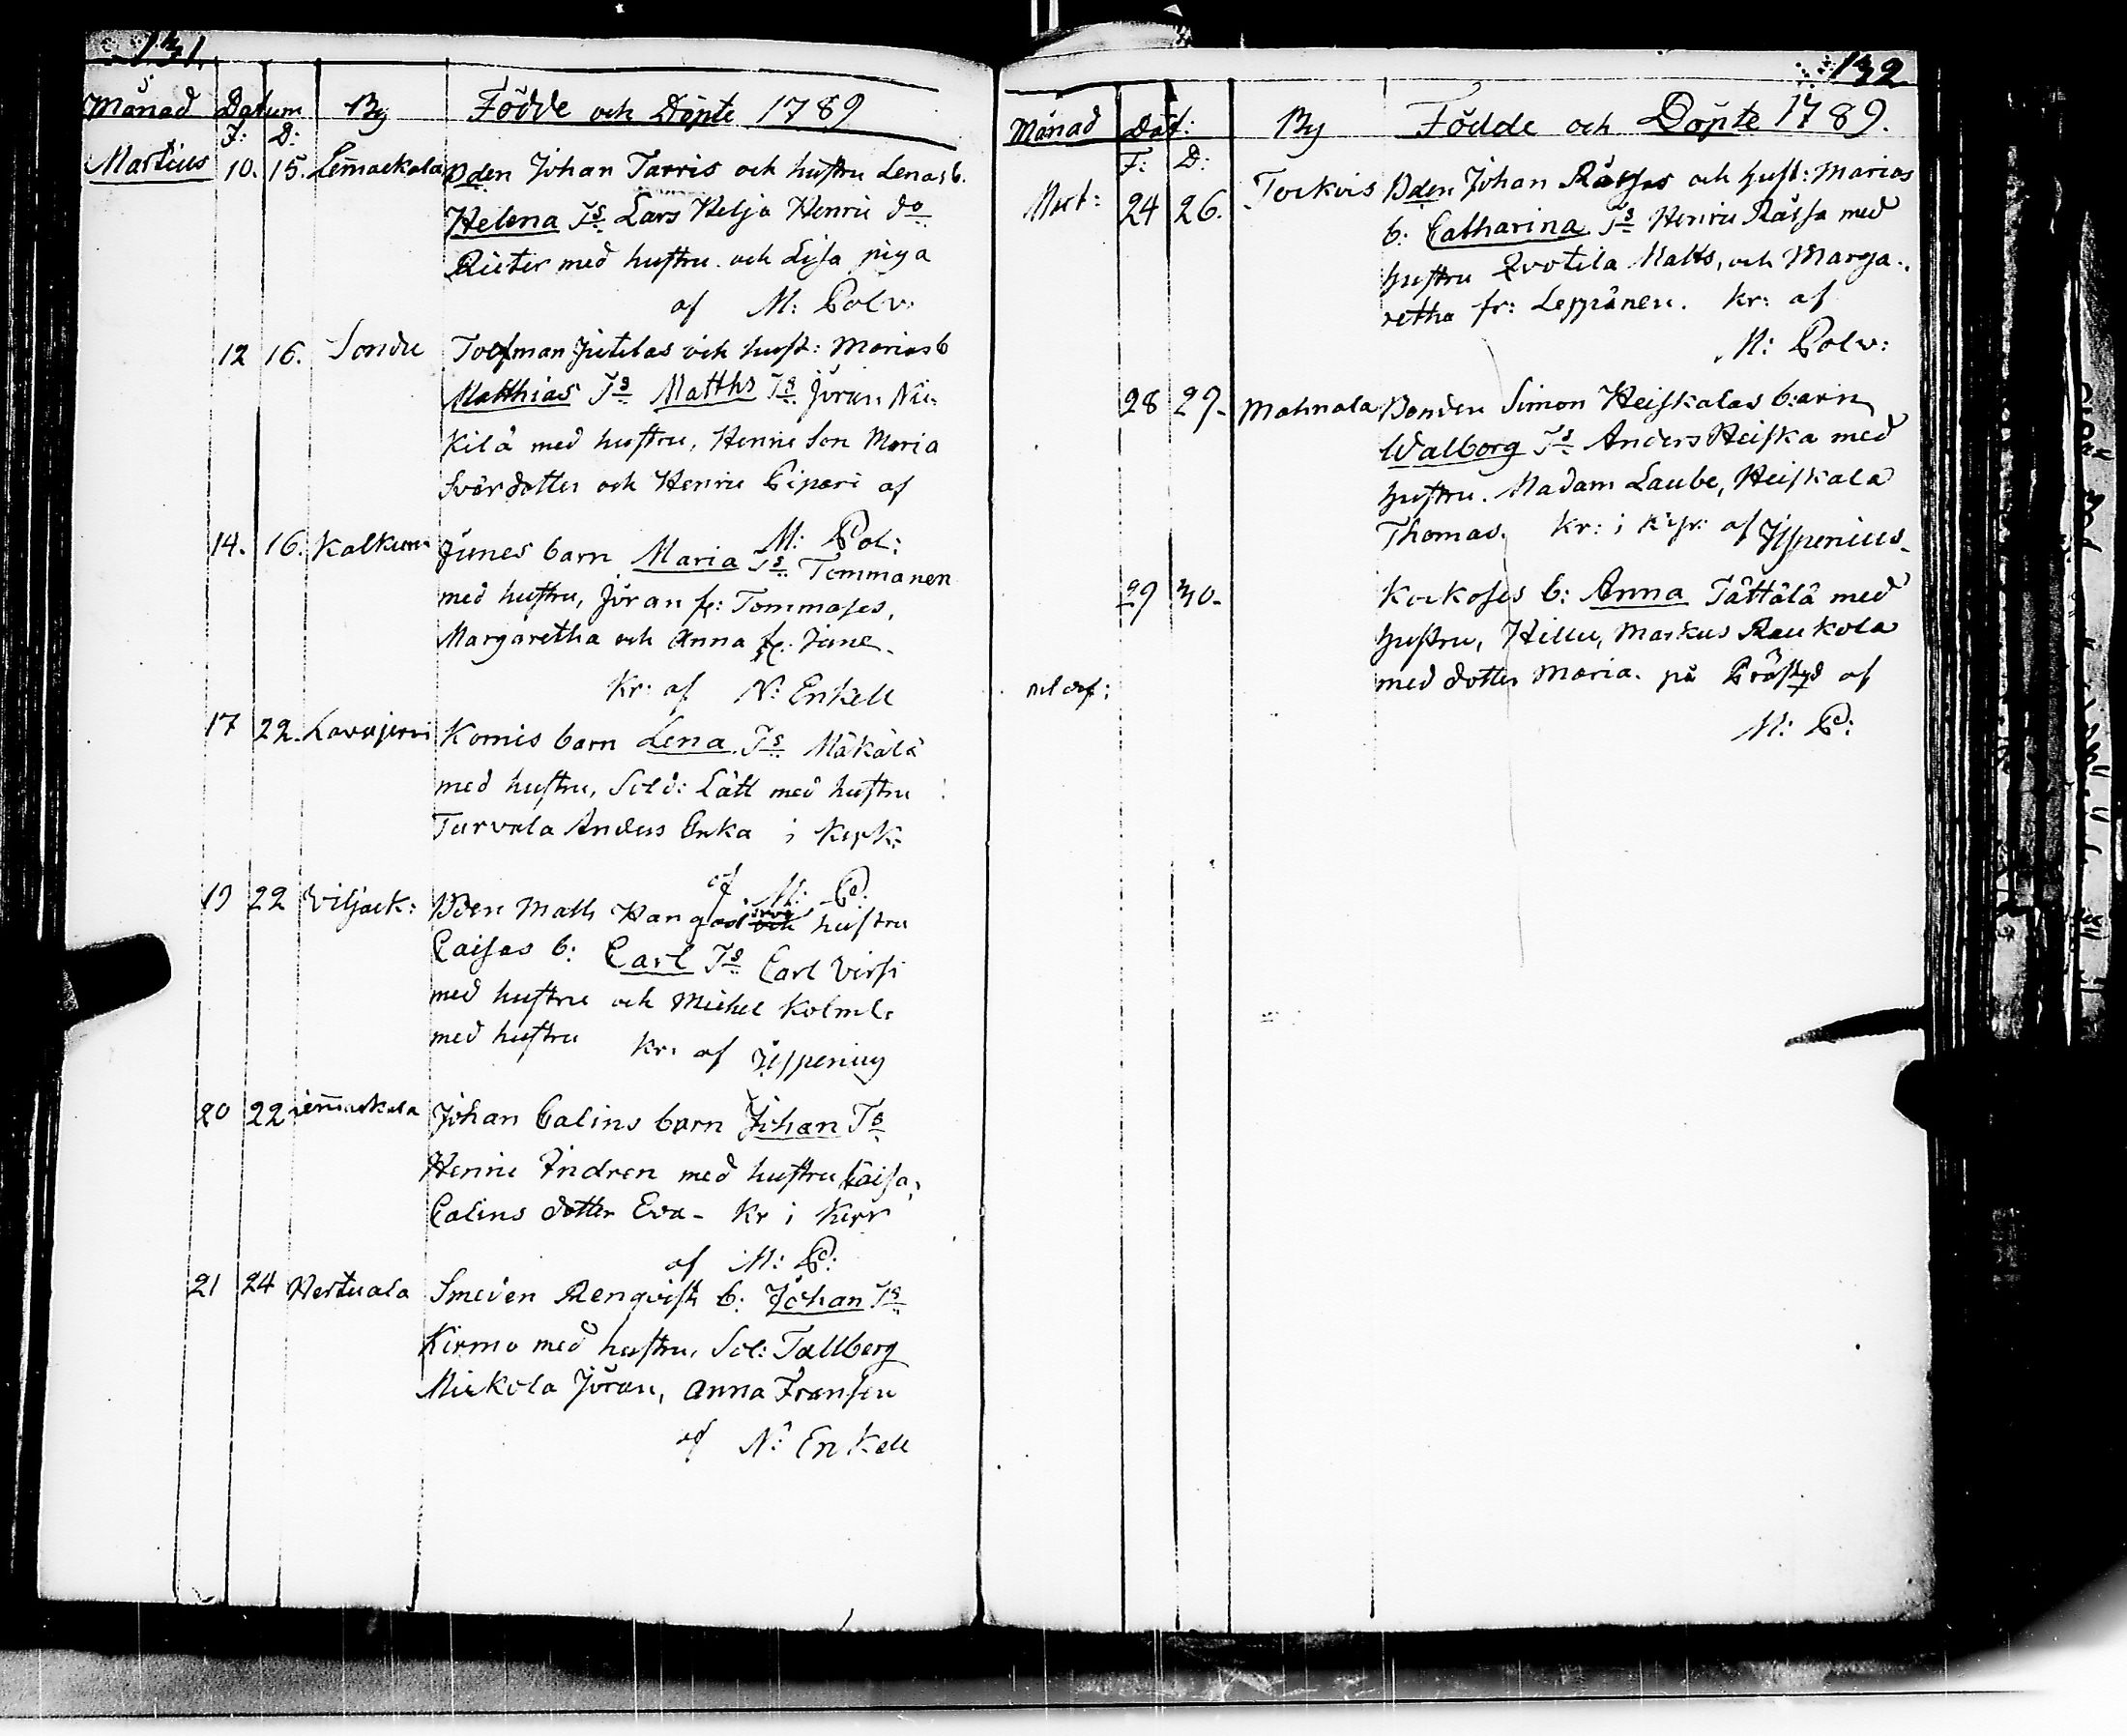 131.
Månad Datum By Födde och Döpte 1789
F: D:
Martius 10. 15. Lem̄ackala Bden Johan Tarris och hustru Lenas b.
Helena Ts Lars Helja Henric do
Rieter med hustru och Lisa piga
af M: Polv:
12 16. Sondu Tolfman Jutilas och hust: Marias b
Matthias Ts Matths Ts Jöran Nii-
kilä med hustru, Henric Son Maria
Svärdotter och Henric Pipari af
M: Pol:
14. 16. Kalkum Junes barn Maria Ts Tommanen
med hustru, Jöran fr: Tommases,
Margaretha och Anna fr. June.
Kr: af N: Enkell
17 22. Lavajervi Komis barn Lena Ts Mäkälä
med hustru, Sold: Lätt med hustru
Turvala Anders Enka i Kyrk:
af M: P:
19 22 Viljack: Bden Matts Hang och hustru
Caisas b: Carl Ts Carl Virsi
med hustru och Michel Kolml:
med hustru Kr: af Jppenius
20 22 Lem̄ackala Johan Calins barn Johan Ts
Henric Indren med hustru Caisa,
Calins dotter Eva - Kr i Kyrk
af M: P:
21 24 Hertuala Smeden Renqvist b: Johan Ts
Kirmo med hustru, Sol: Tallberg
Mickola Jöran, Anna Fransen
af N: Enkell
132
Månad Dat: By Födde och Döpte 1789.
F: D:
Mart: 24 26. Torkois Bden Johan Rässas och hust: Marias
b: Catharina Ts Henric Rässa med
hustru Qvotila Matts, och Marga-
retha fr: Leppänen. Kr: af
M: Polv:
28 29. Mahnala Bonden Simon Heiskalas b:arn
Walborg Ts Anders Heiska med
hustru. Madam Laube, Heiskala
Thomas. Kr: i Kyr: af Jppenius.
29 30. Kockoses b: Anna Tättälä med
hustru, Hillu, Markus Raukola
med dotter Maria. på Prästgd af
M: P: